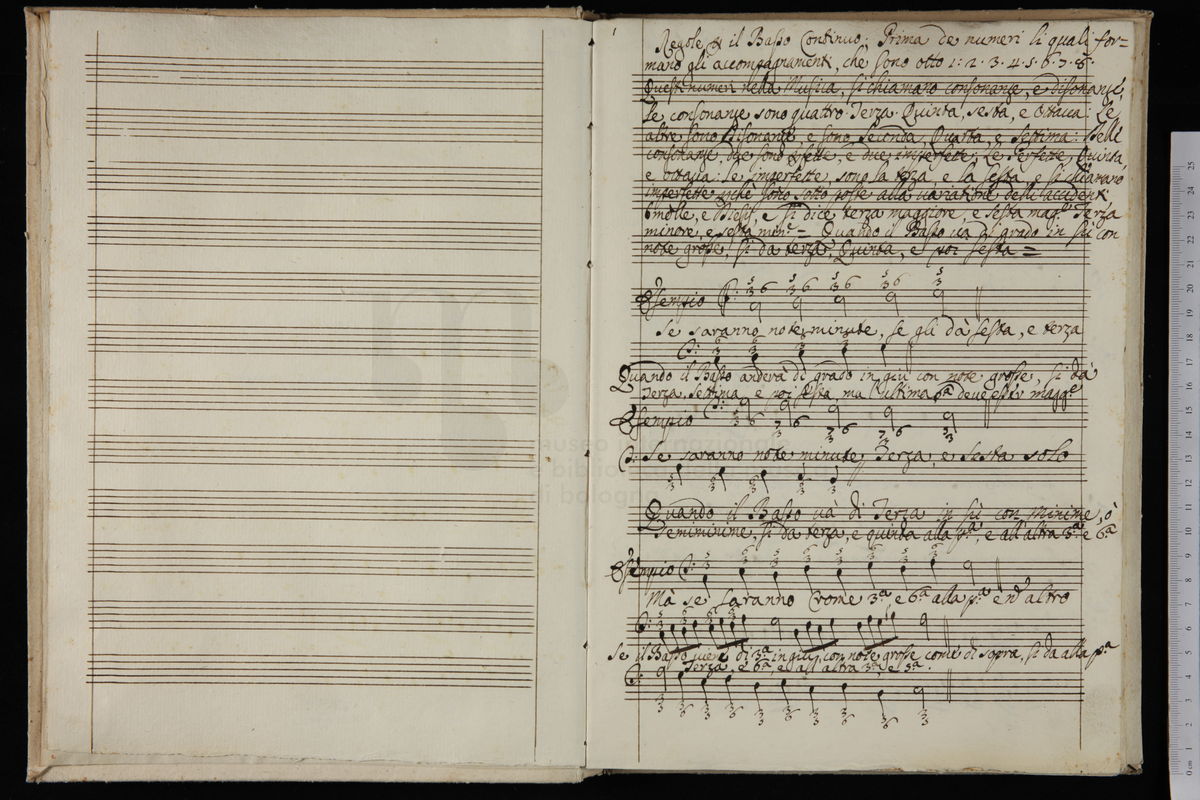 1
Regole p il Basso Continuo. Prima de numeri li quali for=
mano gli accompagnamenti, che sono otto 1: 2. 3. 4. 5. 6. 7. 8.
Questi numeri nella Musica, si chiamano consonanze, e disonanze,
le consonanze sono quattro Terza. Quinta, sesta, e Ottava: Le
altre sono Disonanze e sono Seconda, Quarta, e Settima: Delle
consonanze, due sono pfette, e due imperfette; Le Perfette, Quinta,
e Ottava: le imperfette, sono la terza e la sesta, e si chiamano
imperfette pche sono sotto poste alla variatione delli accidenti
bmolle, e Diesis, e si dice terza maggiore, e sesta mag.e Terza
minore, e sesta min.e = Quando il Basso và di grado in sù con
note grosse, si da terza, Quinta, e poi sesta =
Esempio
Se saranno note minute, se gli dà sesta, e terza
Quando il Basso anderà di grado in giù con note grosse, si dà
Terza, settima, e poi sesta, ma l'ultima 6.a deve esser magg.e
Esempio
Se saranno note minute Terza, e Sesta solo
Quando il Basso và di Terza in sù con Minime, ò
Semiminime, si da terza, e quinta alla p.a, e all'altra 3.a e 6.a
Esempio
Mà se saranno Crome 3.a e 6.a alla p.a e n'd'altro
Se il Basso vien di 3.a in giù, con note grosse come di sopra, si da alla p.a
Terza, e 6.a, e all'altra 3.a, e 5.a
museo internazionale
e biblioteca della musica
di bologna